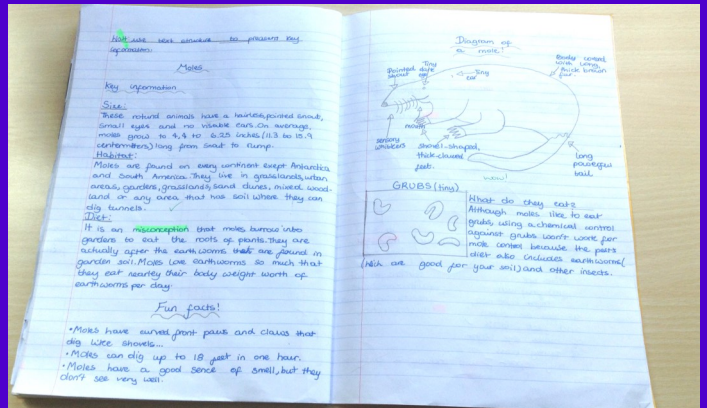 use text structure to present key
information.
Moles
Key information
Size:
These rotund animals have a hairless, pointed snout,
small eyes and no visable ears. On average,
moles grow to 4.4 to 6.25 inches (11.3 to 15.9
centermtters) long from snout to rump.
Habitat:
Moles are found on every continent exept Antarctica
and South America. They live in grasslands, urban
areas, gardens, grasslands, sand dunes, mixed wood-
land or any area that has soil where they can
dig tunnels.
Diet:
It is an misconception that moles burrow into
gardens to eat the roots of plants. They are
actually after the earthworms that are found in
garden soil. Moles love earthworms so much that
they eat nearley their body weight worth of
earthworms per day
Fun facts!
• Moles have curved front paws and claws that
dig like shovels...
• Moles can dig up to 18 feet in one hour.
• Moles have a good sence of smell, but they
don't see very well.
Diagram of
a mole!
Pointed
snout
Tiny
eye
Tiny
ear
Body covered
with long,
thick brown
fur.
mouth
sensory
whiskers
shovel-shaped,
thick-clawed
feet.
long
powerful
tail
GRUBS (tiny)
What do they eat?
Although moles like to eat
grubs, using a chemical control
against grubs won't work for
mole control because the pests
diet also includes earthworms(
which are good for your soil) and other insects.